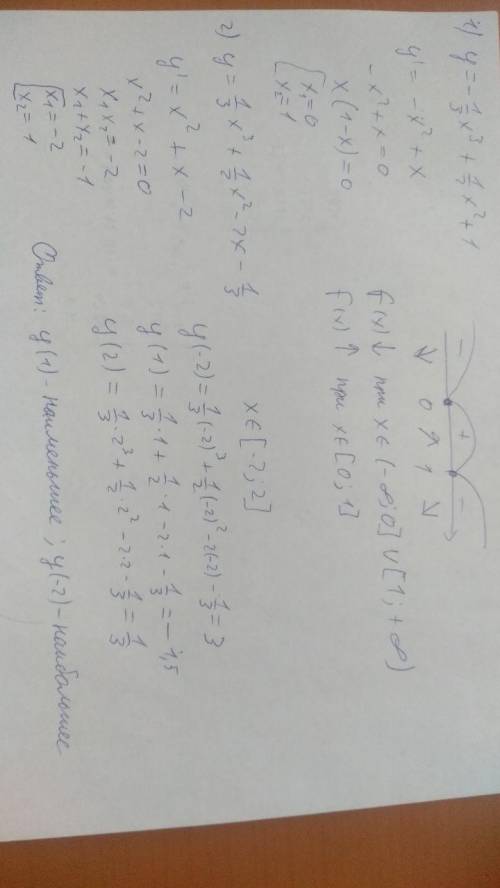 1) y = -1/3 x³ + 1/2 x² + 1
y' = -x² + x
-x² + x = 0
x(1-x) = 0
[x₁ = 0
x₂ = 1
- + -
0 1
↓ ↑ ↓
f(x) ↓ при x ∈ (-∞; 0] ∪ [1; +∞)
f(x) ↑ при x ∈ [0; 1]
2) y = 1/3 x³ + 1/2 x² - 2x - 1/3
x ∈ [-2; 2]
y' = x² + x - 2
x² + x - 2 = 0
x₁x₂ = -2
x₁ + x₂ = -1
[x₁ = -2
x₂ = 1
y(-2) = 1/3 (-2)³ + 1/2 (-2)² - 2(-2) - 1/3 = 3
y(1) = 1/3 · 1 + 1/2 · 1 - 2·1 - 1/3 = -1,5
y(2) = 1/3 · 2³ + 1/2 · 2² - 2·2 - 1/3 = 1/3
Ответ: y(1) - наименьшее; y(-2) - наибольшее